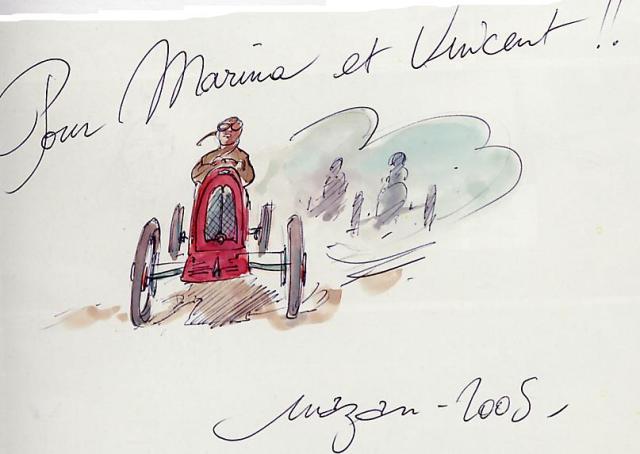 Pour Marina et Vincent !!
Mazan - 2005